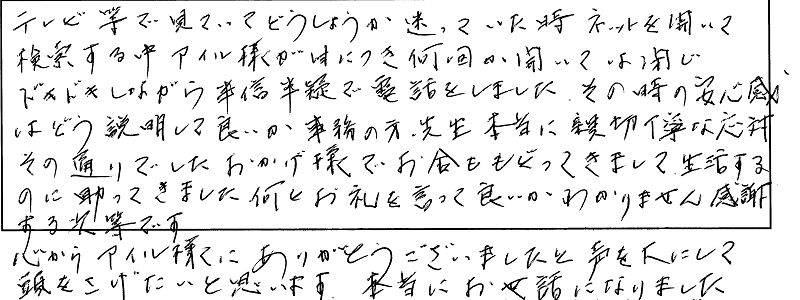 テレビ等で見ていてどうしようか迷っていた時ネットを開いて
検索する中アイル様が目につき何回か開いては閉じ
ドキドキしながら半信半疑で電話をしました その時の安心感が
はどう説明して良いか事務の方、先生本当に親切丁寧な応対
その通りでした おかげ様でお金ももどってきまして生活する
のに助ってきました何とお礼を言って良いかわかりません感謝
する次等です
心からアイル様にありがとうございましたと声を大にして
頭をさげたいと思います 本当にお世話になりました